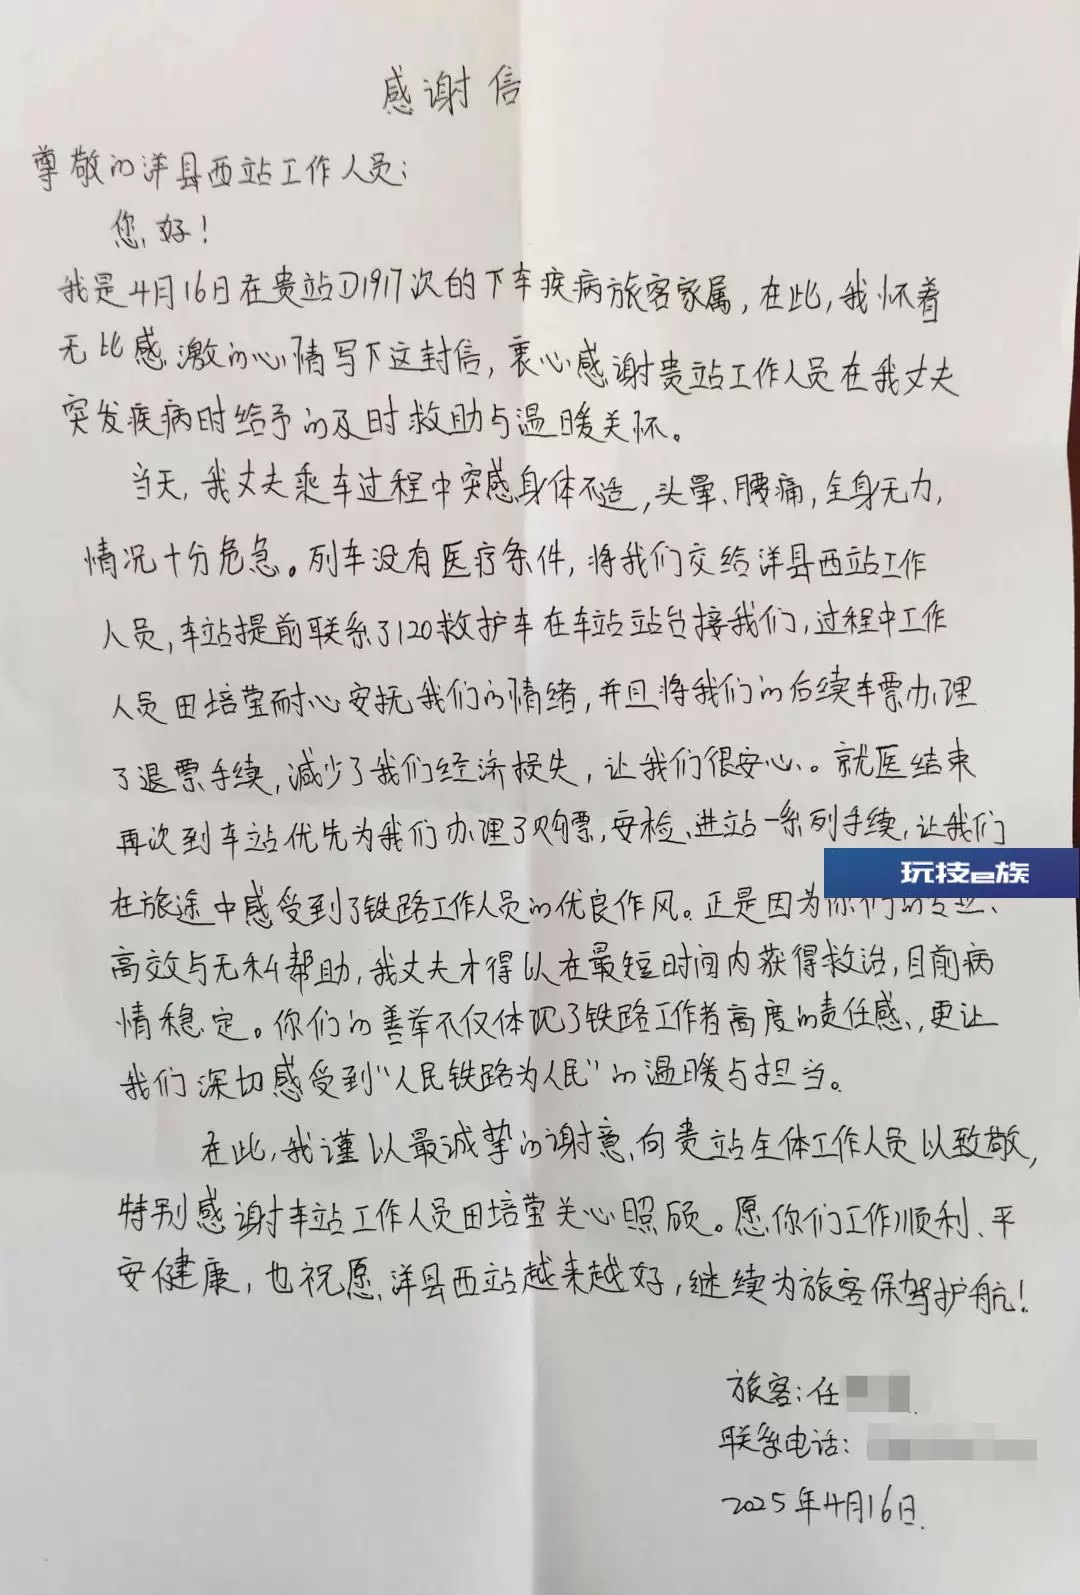 感谢信
尊敬的洋县西站工作人员:
您好!
我是4月16日在贵站D1917次的下车疾病旅客家属,在此,我怀着
无比感激的心情写下这封信,衷心感谢贵站工作人员在我丈夫
突发疾病时给予的及时救助与温暖关怀。
当天,我丈夫乘车过程中突感身体不适,头晕、腰痛,全身无力,
情况十分危急。列车没有医疗条件,将我们交给洋县西站工作
人员,车站提前联系了120救护车在车站站台接我们,过程中工作
人员田培莹耐心安抚我们的情绪,并且将我们的后续车票办理
了退票手续,减少了我们经济损失,让我们很安心。就医结束
再次到车站优先为我们办理了购票,安检、进站一系列手续,让我们
玩技e族
在旅途中感受到了铁路工作人员的优良作风。正是因为你们的专业、
高效与无私帮助,我丈夫才得以在最短时间内获得救治,目前病
情稳定。你们的善举不仅体现了铁路工作者高度的责任感,更让
我们深切感受到“人民铁路为人民”的温暖与担当。
在此,我谨以最诚挚的谢意,向贵站全体工作人员以致敬,
特别感谢车站工作人员田培莹关心照顾。愿你们工作顺利、平
安健康,也祝愿洋县西站越来越好,继续为旅客保驾护航!
旅客:任
联系电话:
2025年4月16日.